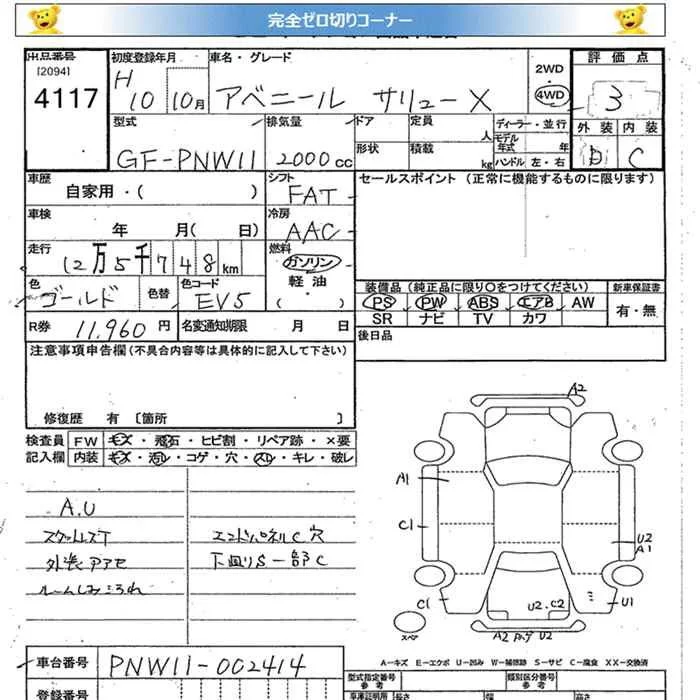 完全ゼロ切りコーナー
出品番号 初度登録年月 車名・グレード 2WD 評価点
[2094] H 4WD
4117 10 10月 アベニール サリューX 3
型式 排気量 ドア 定員 人 ディーラー・並行 外装 内装
モデル年式 年
GF-PNW11 2000cc 形状 積載 kg ハンドル 左・右 D C
車歴 シフト セールスポイント (正常に機能するものに限ります)
自家用・( ) FAT
車検 冷房
年 月( 日) AAC
走行 燃料
12万5千748km ガソリン
色 色替 色コード 軽油 装備品(純正品に限り○をつけてください) 新車保証書
ゴールド EV5 ( ) PS PW ABS エアB AW 有・無
SR ナビ TV カワ
R券 11,960円 名変通知期限 月 日 後日品
注意事項申告欄(不具合内容等は具体的に記入して下さい)
修復歴 有 [箇所 ]
検査員 FW キズ・飛石・ヒビ割・リペア跡・×要
記入欄 内装 キズ・汚レ・コゲ・穴・スレ・キレ・破レ
A2
A1
A.U
C1 U2
A1
スタットレスT エンドパネルC穴
外装アアセ 下廻りS一部C
ルームしみこみれ
C1 U2.C2 U1
スペア A2 U2
A-キズ E-エクボ U-凹み W-補修跡 S-サビ C-腐食 XX-交換済
車台番号 PNW11-002414
型式指定番号 類別区分番号
参考 参考
登録番号 車庫証明用 長さ 幅 高さ